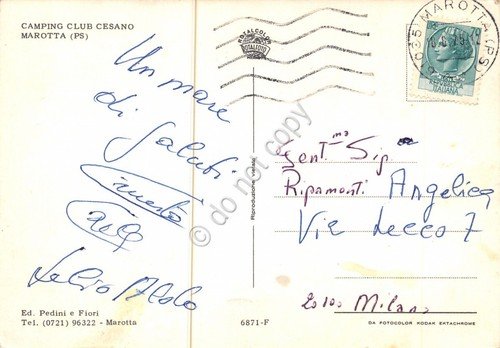 CAMPING CLUB CESANO
MAROTTA (PS)
Un mare
di Saluti
Ed. Pedini e Fiori
Tel. (0721) 96322 - Marotta
6871-F
Riproduzione vietata
FOTALCOLOR
MAROTTA (PS)
ITALIANA
Gent.ma Sig.
Ripamonti Angelica
Via Lecco 7
20100 Milano
DA FOTOCOLOR KODAK EKTACHROME
do not copy